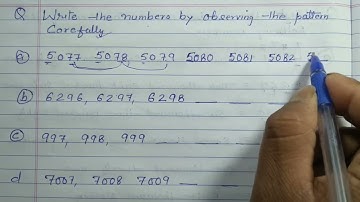 Q Write the numbers by observing the pattern
Carefully
(a) 5077 5078, 5079 5080 5081 5082 5
(b) 6296, 6297, 6298 _ _ _
(c) 997, 998, 999 _ _ _
d 7007, 7008 7009 _ _